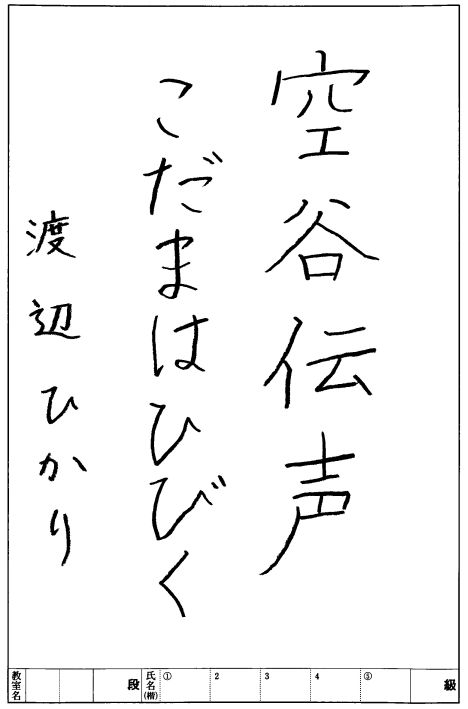 空谷伝声
こだまはひびく
渡辺ひかり
教室名
段
氏名(楷)
①
2
3
4
⑤
級